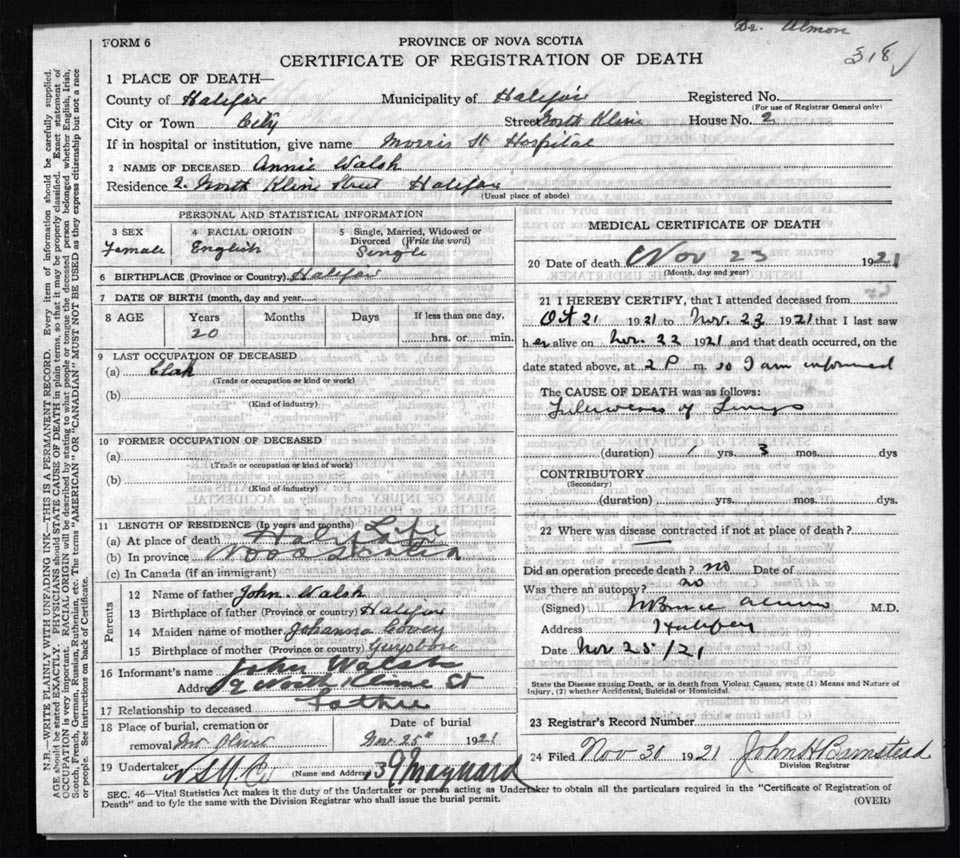 Dr. Almon
318 ✓
FORM 6
PROVINCE OF NOVA SCOTIA
CERTIFICATE OF REGISTRATION OF DEATH
1 PLACE OF DEATH—
County of Halifax Municipality of Halifax Registered No.
(For use of Registrar General only)
City or Town City Street North Kline House No. 2
If in hospital or institution, give name Morris St Hospital
2 NAME OF DECEASED Annie Walsh
Residence 2 North Kline Street Halifax
(Usual place of abode)
PERSONAL AND STATISTICAL INFORMATION
3 SEX
Female
4 RACIAL ORIGIN
English
5 Single, Married, Widowed or Divorced (Write the word)
Single
6 BIRTHPLACE (Province or Country) Halifax
7 DATE OF BIRTH (month, day and year)
8 AGE Years Months Days If less than one day,
20 hrs. or min.
9 LAST OCCUPATION OF DECEASED
(a) Clak
(Trade or occupation or kind or work)
(b)
(Kind of industry)
10 FORMER OCCUPATION OF DECEASED
(a)
(Trade or occupation or kind of work)
(b)
(Kind of industry)
11 LENGTH OF RESIDENCE (In years and months) Life
(a) At place of death Halifax
(b) In province Nova Scotia
(c) In Canada (if an immigrant)
Parents
12 Name of father John. Walsh
13 Birthplace of father (Province or country) Halifax
14 Maiden name of mother Johanna
15 Birthplace of mother (Province or country) Guysboro
16 Informant's name John Walsh
Address 2 North Kline St
17 Relationship to deceased Father
18 Place of burial, cremation or Date of burial
removal Mt Olivet Nov. 25th 1921
19 Undertaker N S U Co (Name and Address) 39 Maynard
MEDICAL CERTIFICATE OF DEATH
20 Date of death Nov 23 1921
(Month, day and year)
21 I HEREBY CERTIFY, that I attended deceased from
Oct 21 1921 to Nov. 23 1921 that I last saw
her alive on Nov. 22 1921 and that death occurred, on the
date stated above, at 2 P m. so I am informed
The CAUSE OF DEATH was as follows:
Tuberculosis of Lungs
(duration) 1 yrs. 3 mos. dys
CONTRIBUTORY
(Secondary)
(duration) yrs. mos. dys.
22 Where was disease contracted if not at place of death?
—
Did an operation precede death? no Date of
Was there an autopsy? no
(Signed) W Bruce Almon M.D.
Address Halifax
Date Nov 25/21
State the Disease causing Death, or in death from Violent Causes, state (1) Means and Nature of
Injury, (2) whether Accidental, Suicidal or Homicidal.
23 Registrar's Record Number
24 Filed Nov 30 1921 John H Barnstead
Division Registrar
SEC. 46—Vital Statistics Act makes it the duty of the Undertaker or person acting as Undertaker to obtain all the particulars required in the "Certificate of Registration of
Death" and to fyle the same with the Division Registrar who shall issue the burial permit.
(OVER)
N.B.—WRITE PLAINLY WITH UNFADING INK—THIS IS A PERMANENT RECORD. Every item of information should be carefully supplied.
AGE should be stated EXACTLY. PHYSICIANS should STATE CAUSE OF DEATH in plain terms, so that it may be properly classified. Exact statement of
OCCUPATION is very important. RACIAL ORIGIN will be described by stating to what people or tongue the deceased person belonged whether English, Irish,
Scotch, French, German, Russian, Ruthenian, etc. The terms "AMERICAN" OR "CANADIAN" MUST NOT BE USED as they express citizenship but not a race
or people. See instructions on back of Certificate.